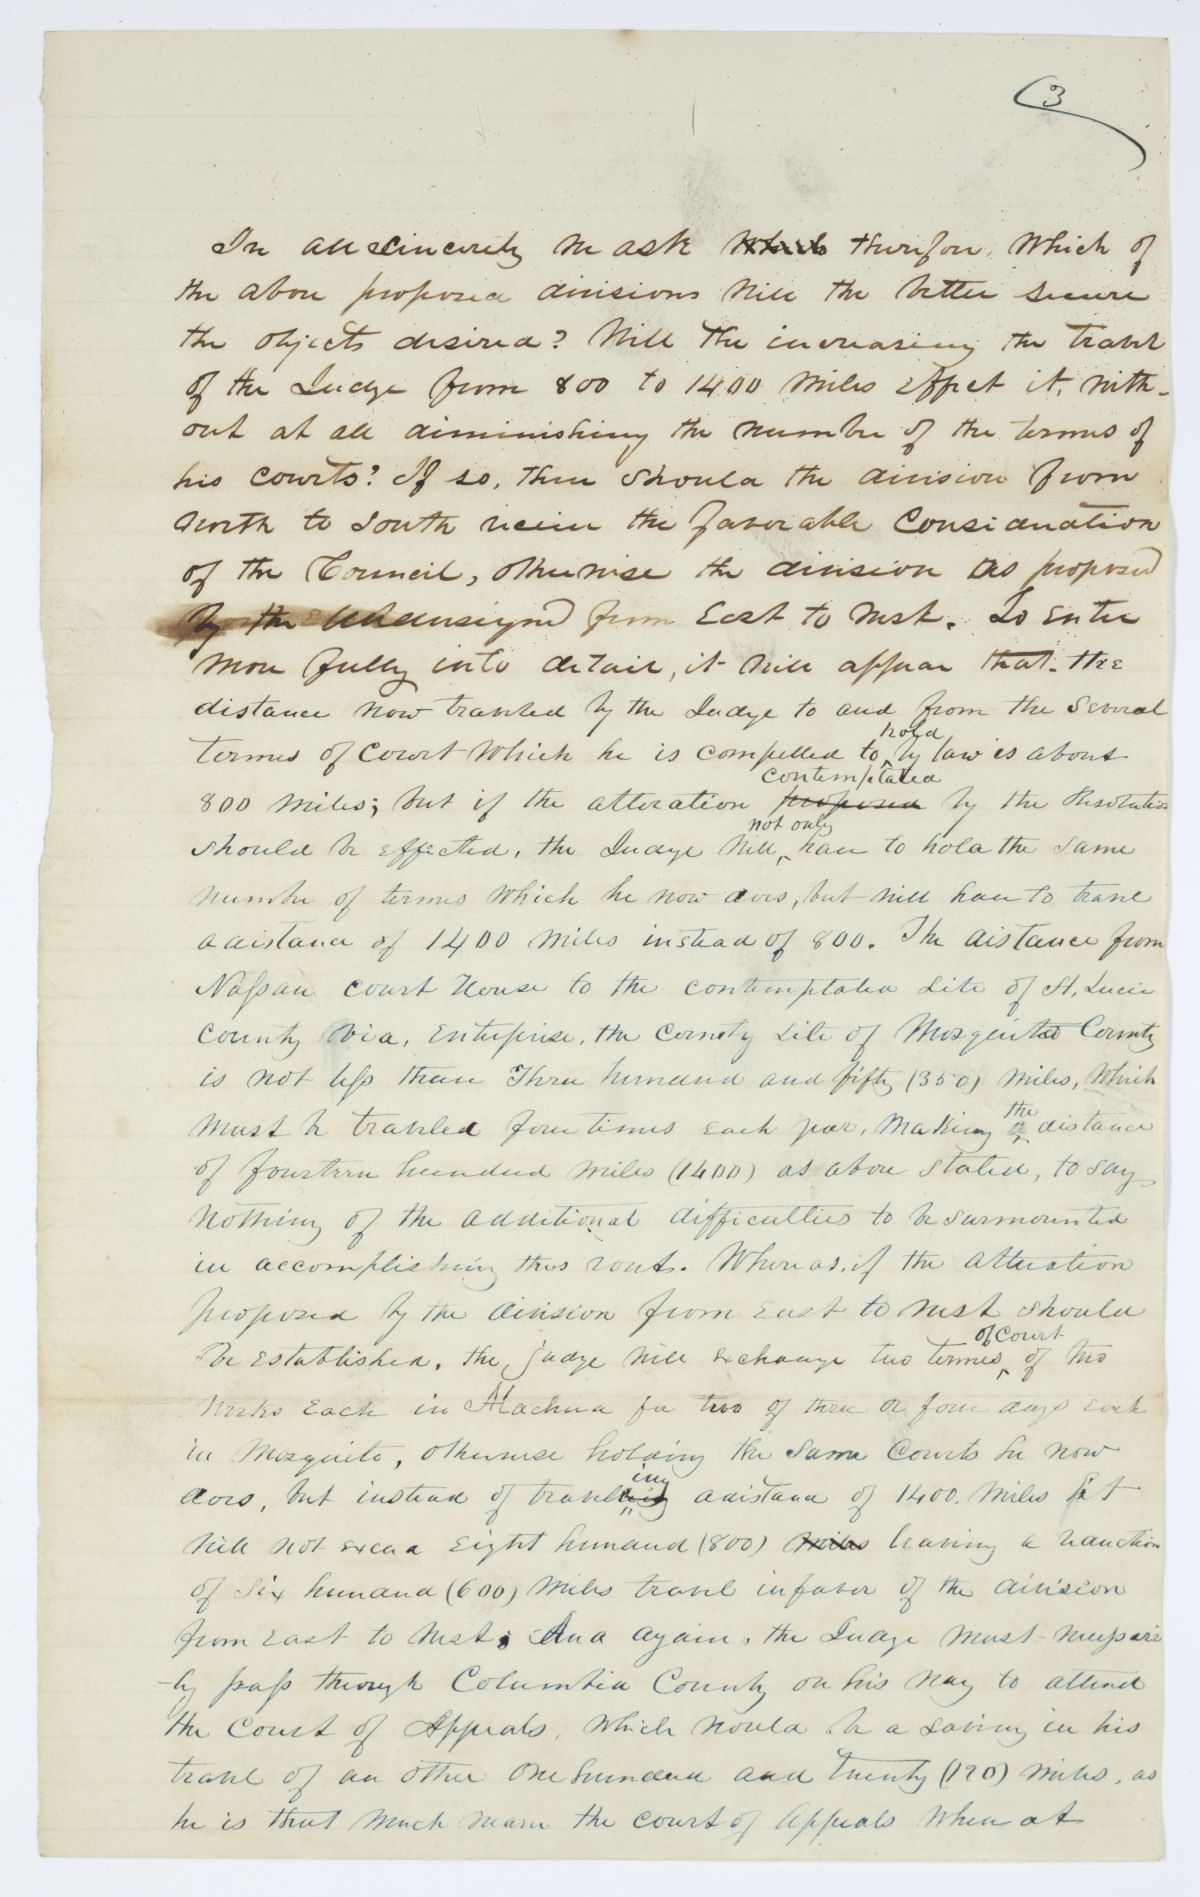 3
In all sincerity we ask which therefore, which of
the above proposed divisions will the better secure
the objects desired? Will the increasing the travel
of the Judge from 800 to 1400 miles effect it, with-
out at all diminishing the number of the terms of
his courts? If so, then should the division from
North to South receive the favorable Consideration
of the Council, otherwise the division as proposed
by the undersigned from East to West. To enter
more fully into detail, it will appear that the
distance now traveled by the Judge to and from the several
terms of court which he is compelled to hold by law is about
800 miles; but if the alteration proposed contemplated by the Resolution
should be effected, the Judge will not only have to hold the same
number of terms which he now does, but will have to travel
a distance of 1400 miles instead of 800. The distance from
Nassau court House to the contemplated site of St. Lucie
county via, Enterprise, the county site of Mosquito County
is not less than Three hundred and fifty (350) miles, which
must be traveled four times each year, making the distance
of fourteen hundred miles (1400) as above stated, to say
nothing of the additional difficulties to be surmounted
in accomplishing this rout. Whereas, if the alteration
proposed by the division from east to west should
be established, the judge will exchange two terms of court of two
weeks each in Alachua for two of three or four days each
in Mosquito, otherwise holding the same Courts he now
does, but instead of traveling a distance of 1400 miles it
will not exceed Eight hundred (800) miles leaving a reduction
of six hundred (600) miles travel in favor of the division
from east to west. And again, the Judge must necessari-
-ly pass through Columbia County on his way to attend
the Court of Appeals, which would be a saving in his
travel of an other One hundred and twenty (120) miles, as
he is that much nearer the court of Appeals when at